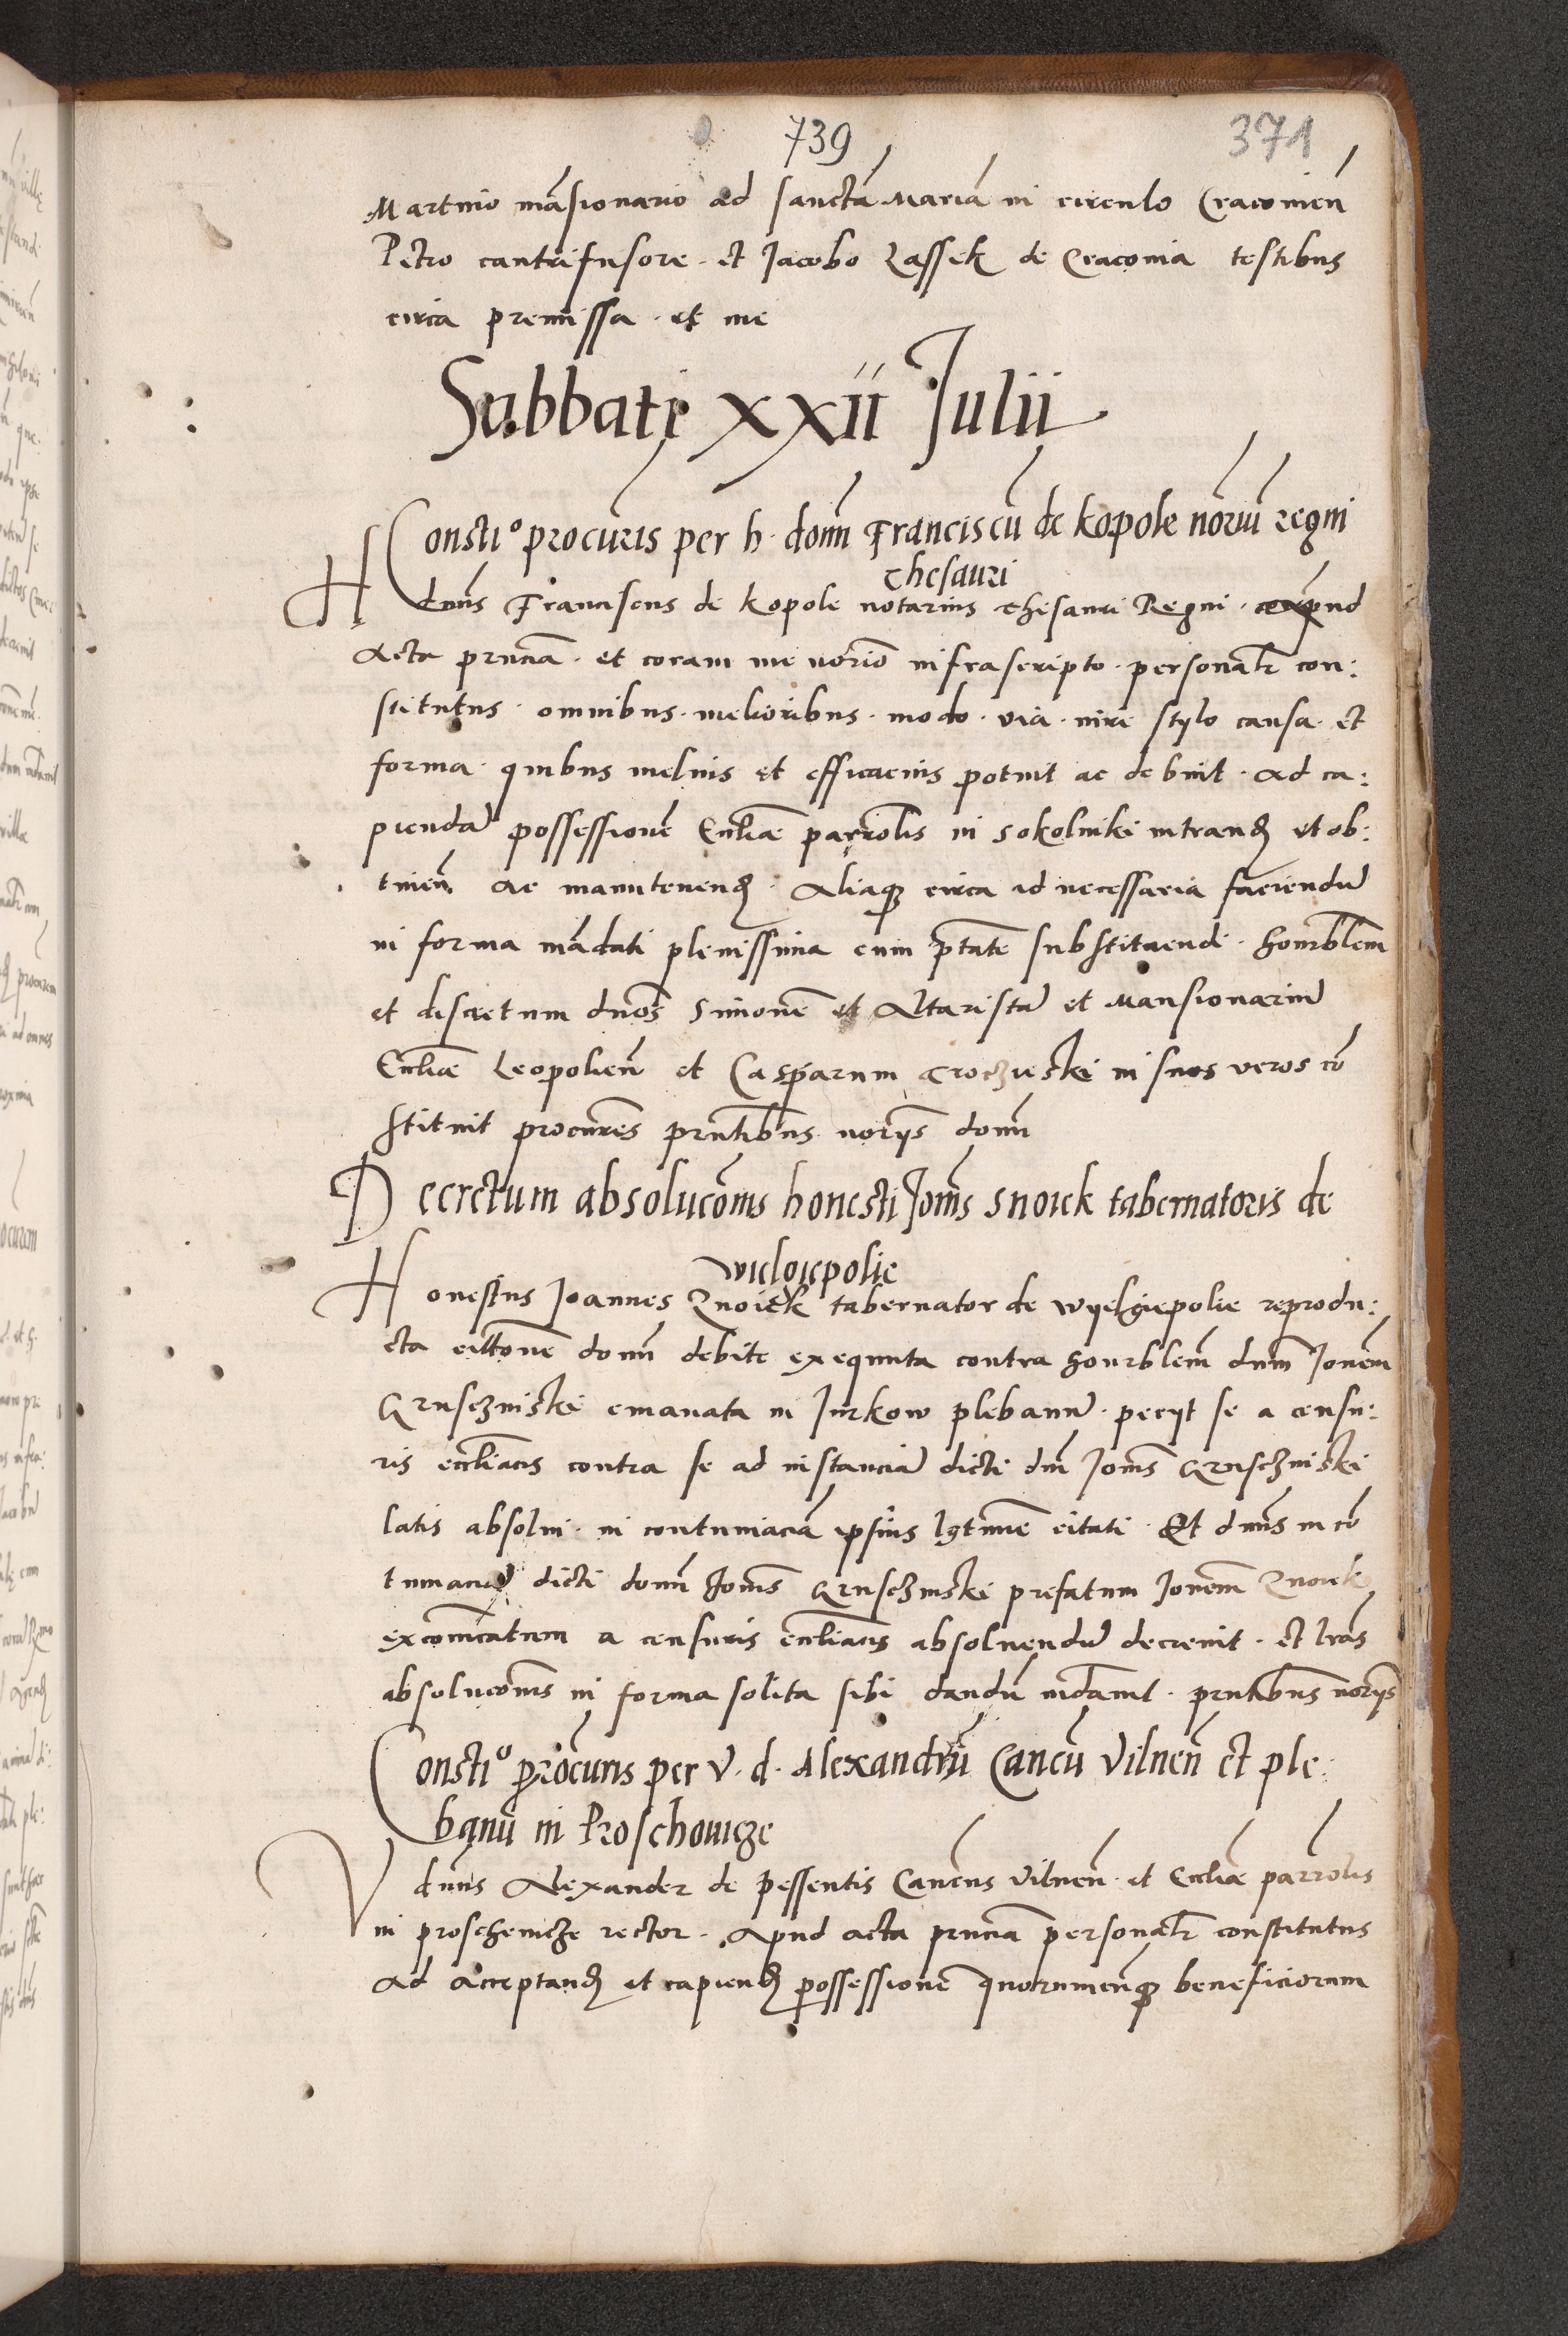 739
371
Martino mãsionario ad sanctã Mariã in circulo Cracovien̄
Petro cantrifusore · et Jacobo Lassek de Cracovia testibus
circa premissa · et me
Sabbati xxii Julii
Consti° procur̄is per h · dom̄ Franciscū de kopole nōriū regni
thesauri
H dn̄us Franciscus de kopole notarius thesauri Regni · apud
Acta prn̄cia · et coram me nōrio infrascripto · personalr̄ con:
stitutus · omnibus · melioribus · modo · via · iure stylo causa · et
forma · quibus melius et efficacius potuit ac debuit · Ad ca:
piendã possessionẽ Ecc̄liae parrōlis in Sokolniki intrand̄ et ob:
tinen̄ ac manutenend̄ · Aliaqꝫ circa id necessaria faciendũ
in forma mãdati plenissima cum ptāte substituendi · honorblem̄
et discretum dn̄os Simonẽ et Altaristã et Mansionariũ
Ecc̄liae Leopolien̄ et Casparum Croczieski in suos veros cō
stituit procur̄es prn̄tibus noriȷs dom̄
Decretum absolucōnis honesti Joān̄is Snoiek tabernatoris de
wielgiepolie
Honestus Joannes Znoiek tabernator de wyelgiepolie reprodu:
cta citt̄one dom̄ debite exequuta contra honorblem̄ dnm̄ Joānem̄
Gruschziñski emanata in Jurkow plebanũ · peciit se a censu:
ris eccl̄iacis contra se ad instanciã dicti dn̄i Joān̄is Gruschzinski
latis absolui · in contumaciã ipsius lgt̄ime citati · Et dn̄us in cō
tumaciã dicti dom̄ Joān̄is Gruschzinski prefatum Joānem̄ Znoiek
excom̄catum a censuris eccl̄iacis absoluendũ decreuit · et lrãs
absolucōnis in forma solita sibi dandũ mdāuit · prn̄tibus noriȷs
Consti° procur̄is per v · d · Alexandrū Can̄cū Vilnen̄ et ple:
banū in Proschouicze
V dn̄us Alexander de pessentis Can̄cus Vilnen̄ · et Ecc̄liae parrōlis
in proschouicze rector · Apud acta prn̄cia personalr̄ constitutus
ad acceptand̄ et capiend̄ possessionẽ quorumcunqꝫ beneficiorum